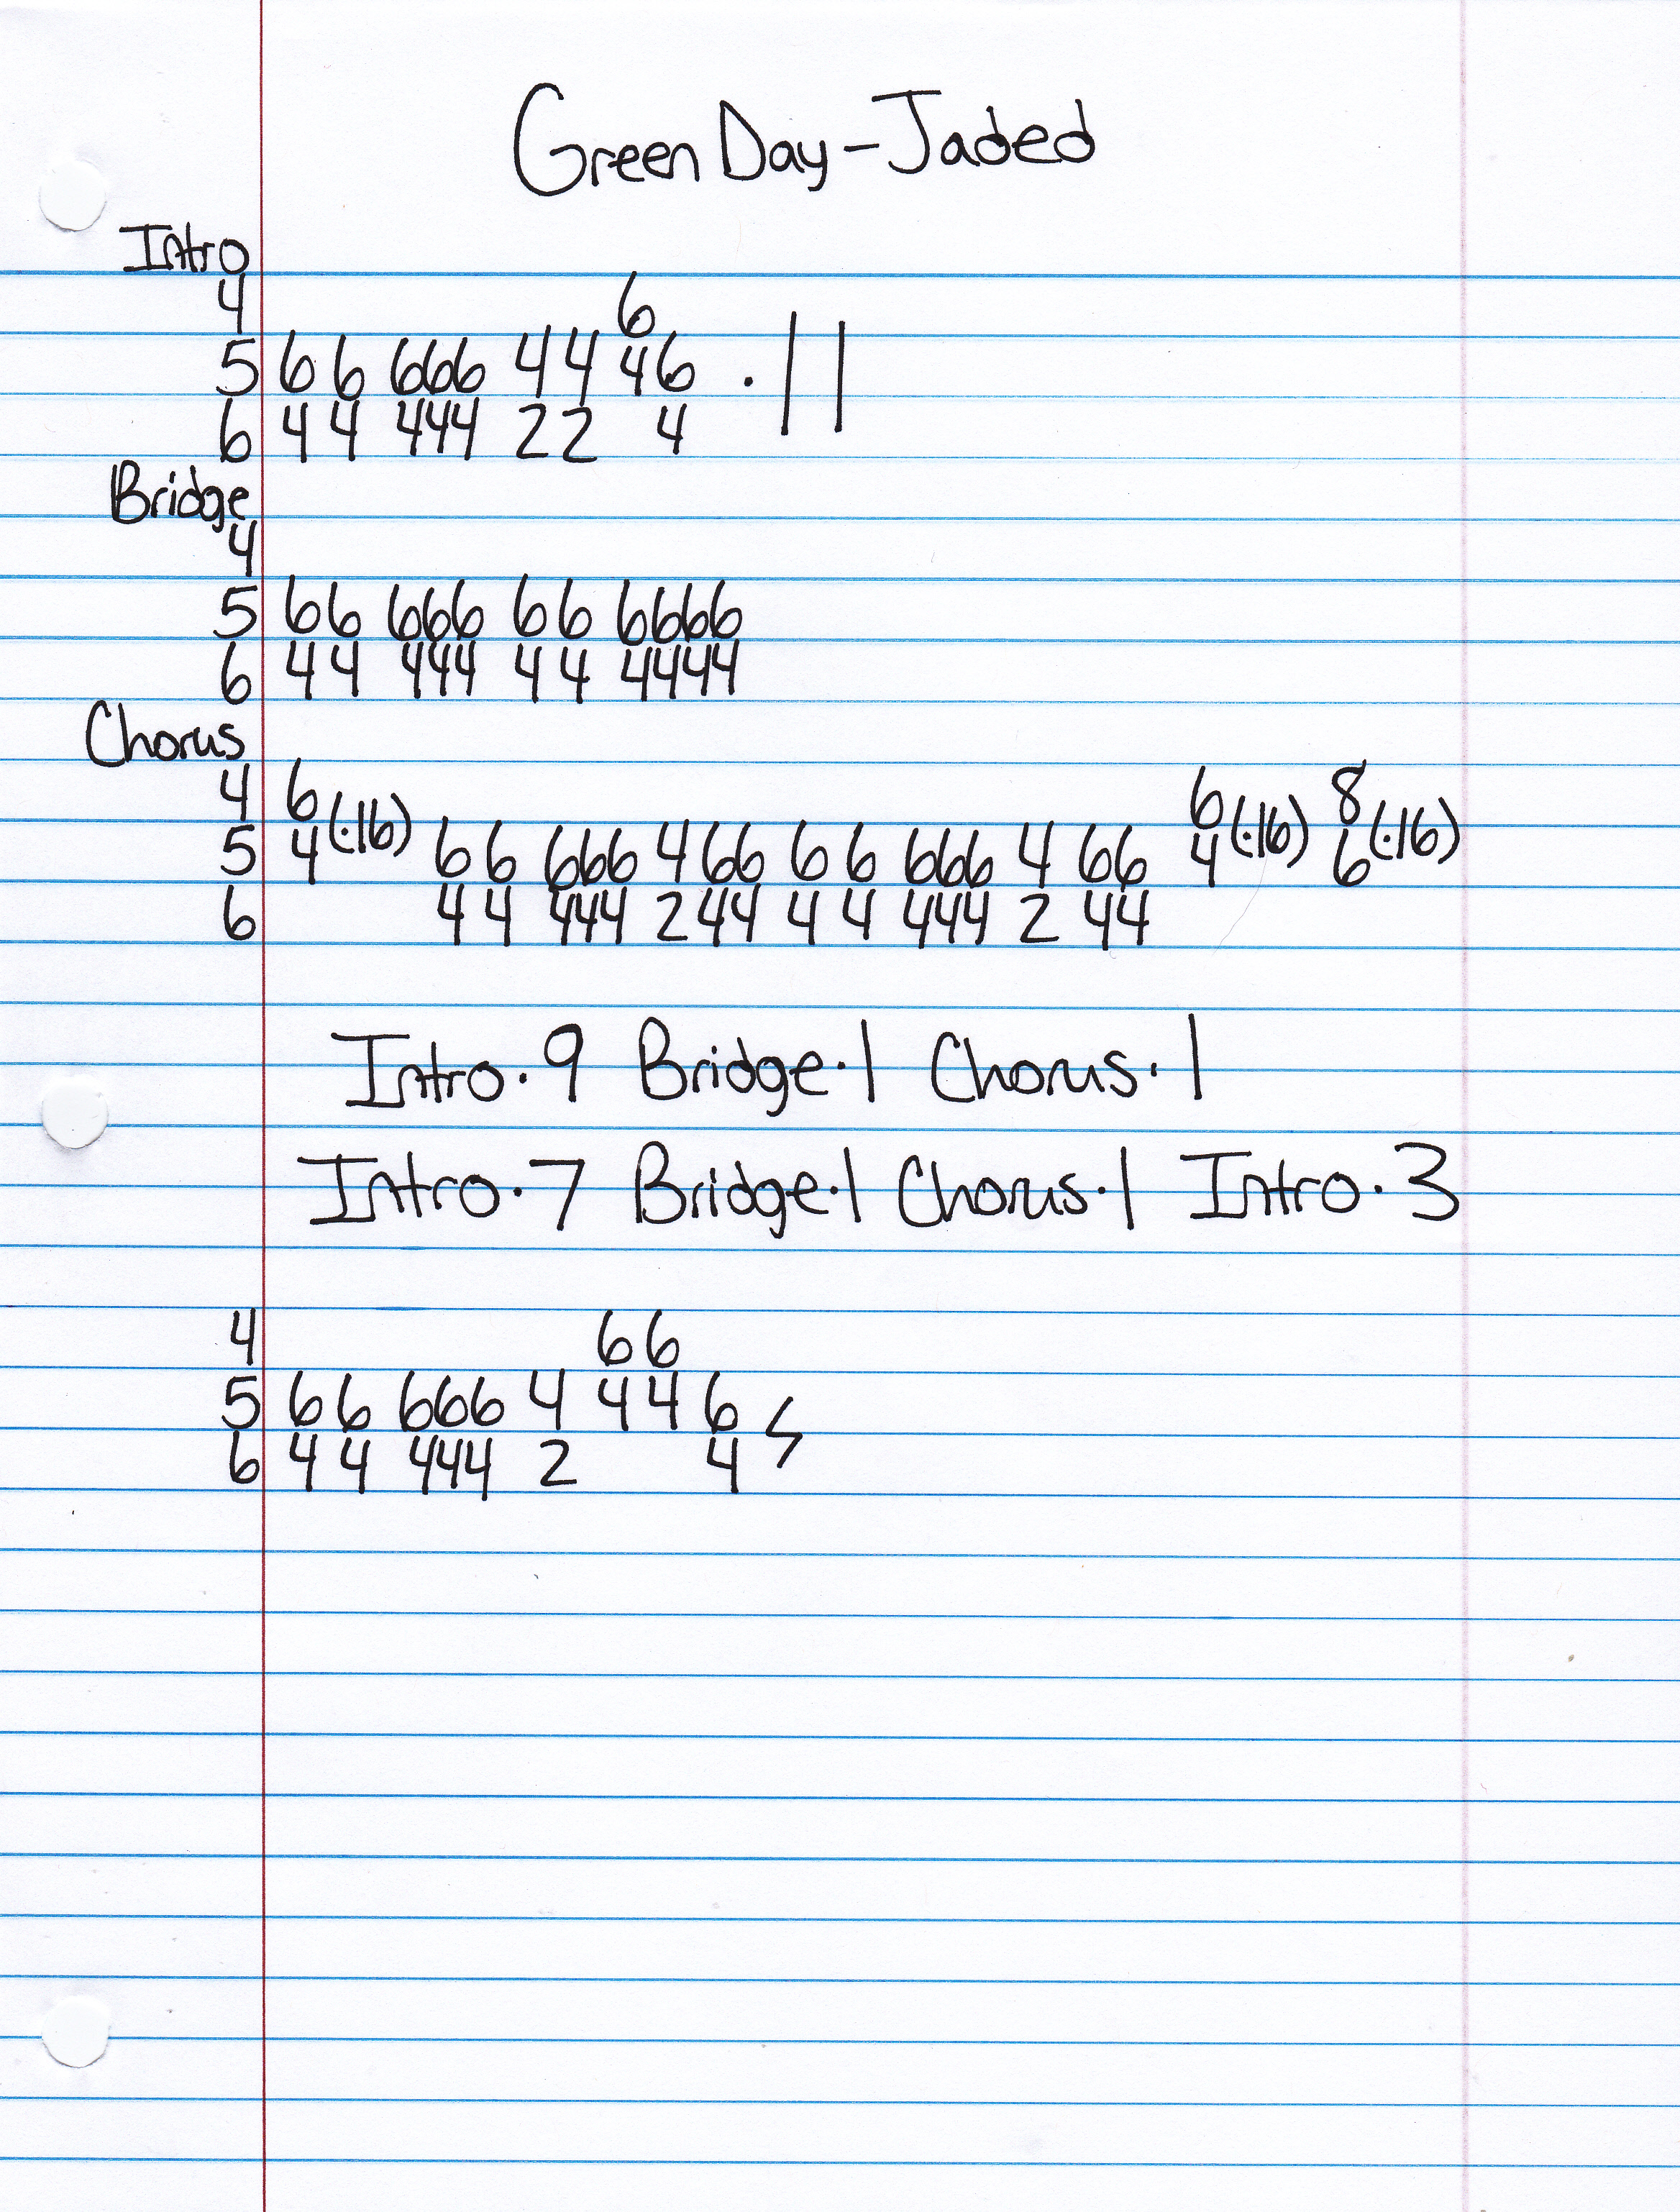 Green Day - Jaded
Intro
4 6
5 6 6 666 4 4 4 6 . | |
6 4 4 444 2 2 4
Bridge
4
5 66 666 6 6 6666
6 4 4 444 4 4 4444
Chorus
4 6 6 8
5 4 (·16) 6 6 666 4 66 6 6 666 4 66 4 (·16) 6 (·16)
6 4 4 444 2 44 4 4 444 2 44
Intro·9 Bridge·1 Chorus·1
Intro·7 Bridge·1 Chorus·1 Intro·3
4 6 6
5 6 6 666 4 4 4 6
6 4 4 444 2 4